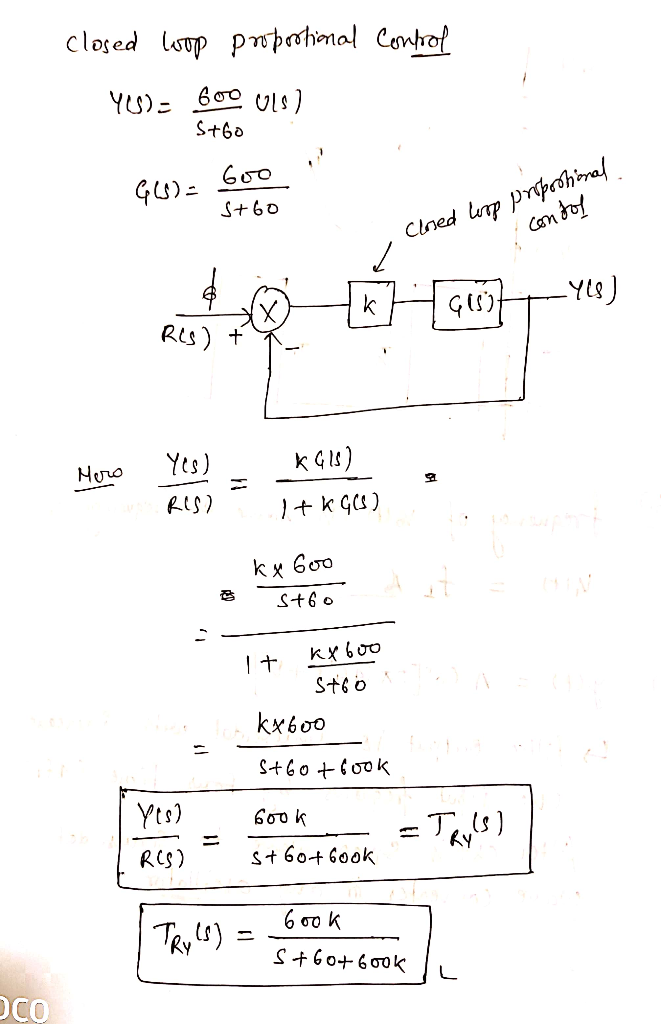 Closed loop proportional Control
Y(s) = 600/(s+60) U(s)
G(s) = 600/(s+60)
Closed loop proportional
control
R(s) + X K G(s) Y(s)
-
Now Y(s)/R(s) = KG(s)/(1+KG(s))
= (K×600/(s+60))/(1+K×600/(s+60))
= K×600/(s+60+600K)
Y(s)/R(s) = 600K/(s+60+600K) = T_Ry(s)
T_Ry(s) = 600K/(s+60+600K)
OCO